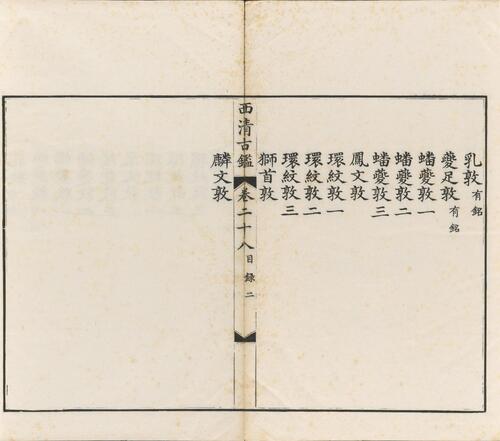 乳敦有銘
夔足敦有銘
蟠夔敦一
蟠夔敦二
蟠夔敦三
鳳文敦
環紋敦一
環紋敦二
環紋敦三
獅首敦
西清古鑑 卷二十八目録 二
麟文敦